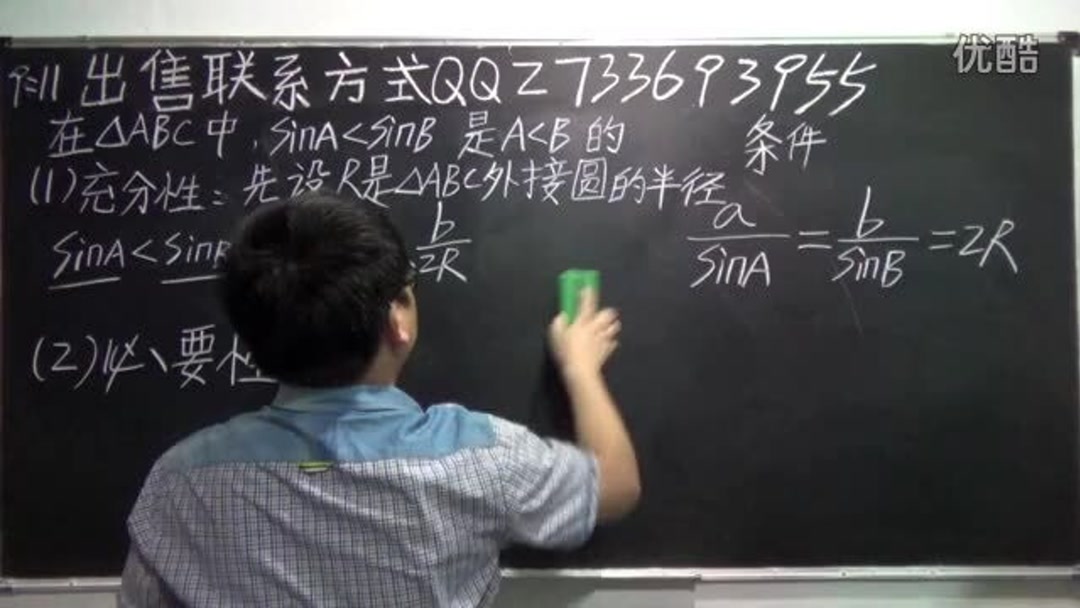 优酷
9:11 出售联系方式QQ2733693955
在△ABC中,sinA<sinB 是A<B 的 条件
(1)充分性:先设R是△ABC外接圆的半径
sinA<sinB b/2R a/sinA=b/sinB=2R
(2)必要性